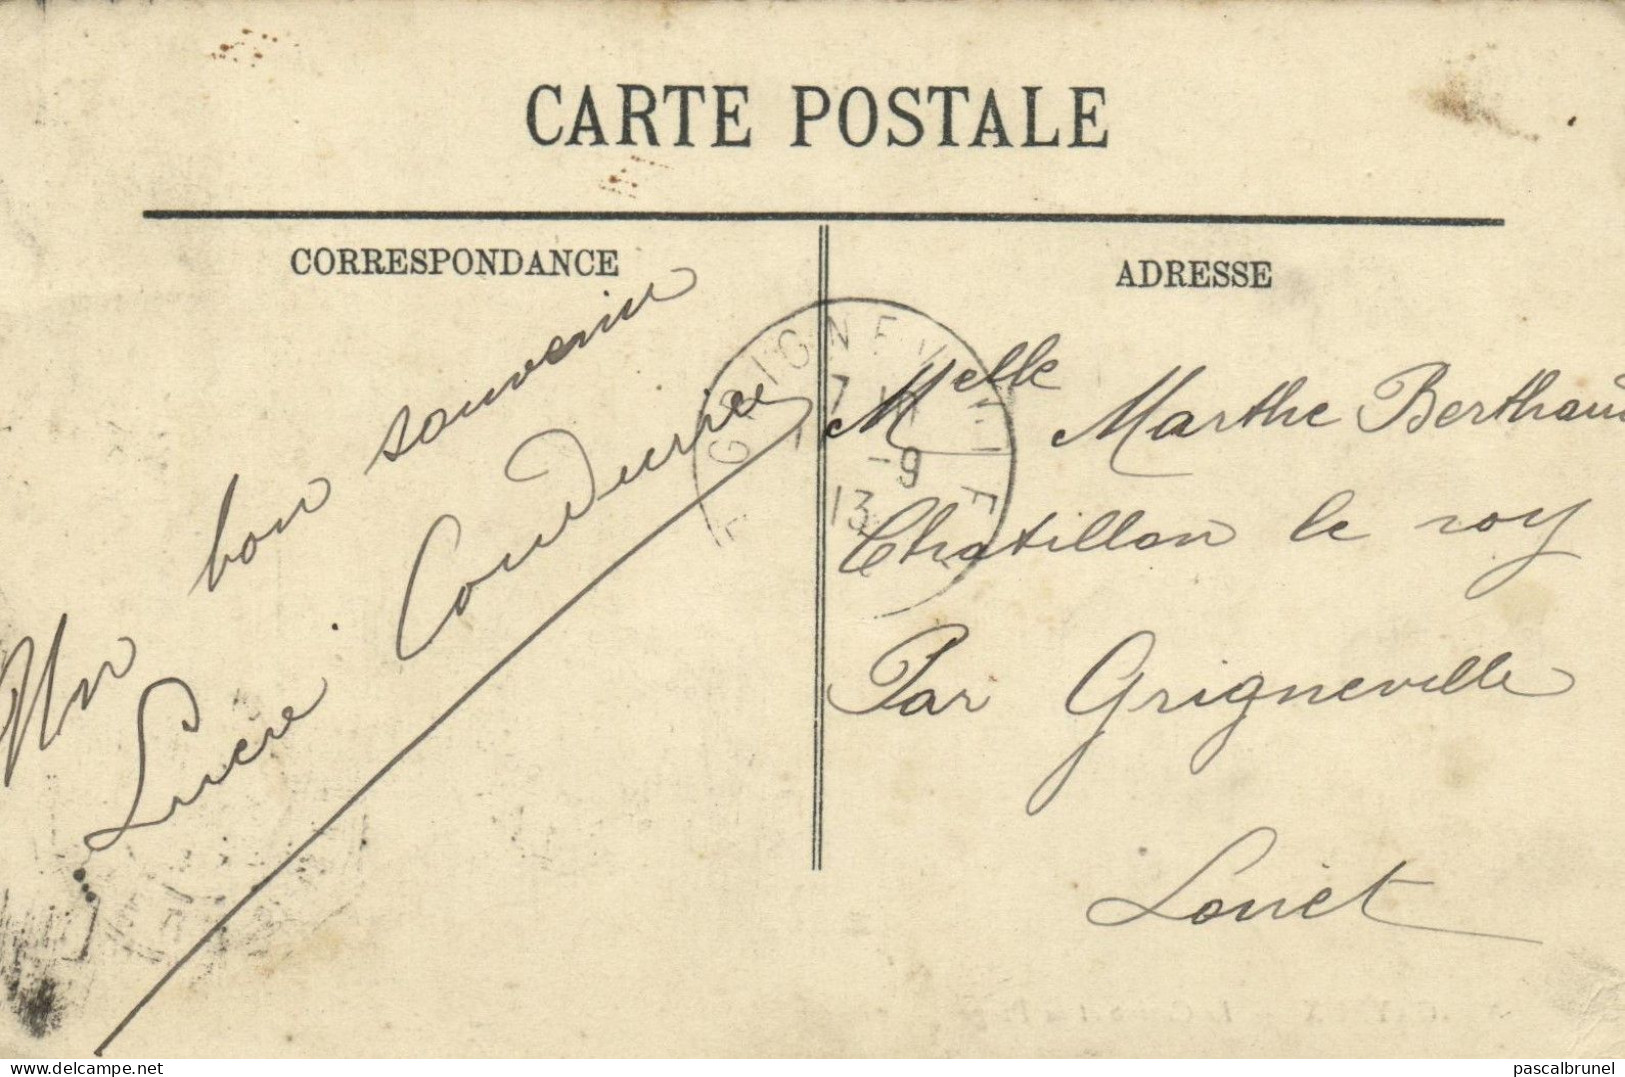 CARTE POSTALE
CORRESPONDANCE
Un bon souvenir
Lucie Coudurier
ADRESSE
GRIGNEVILLE
7
-9
13
Melle Marthe Berthau
Chatillon le roy
Par Grigneville
Loiret
delcampe.net
pascalbrunel